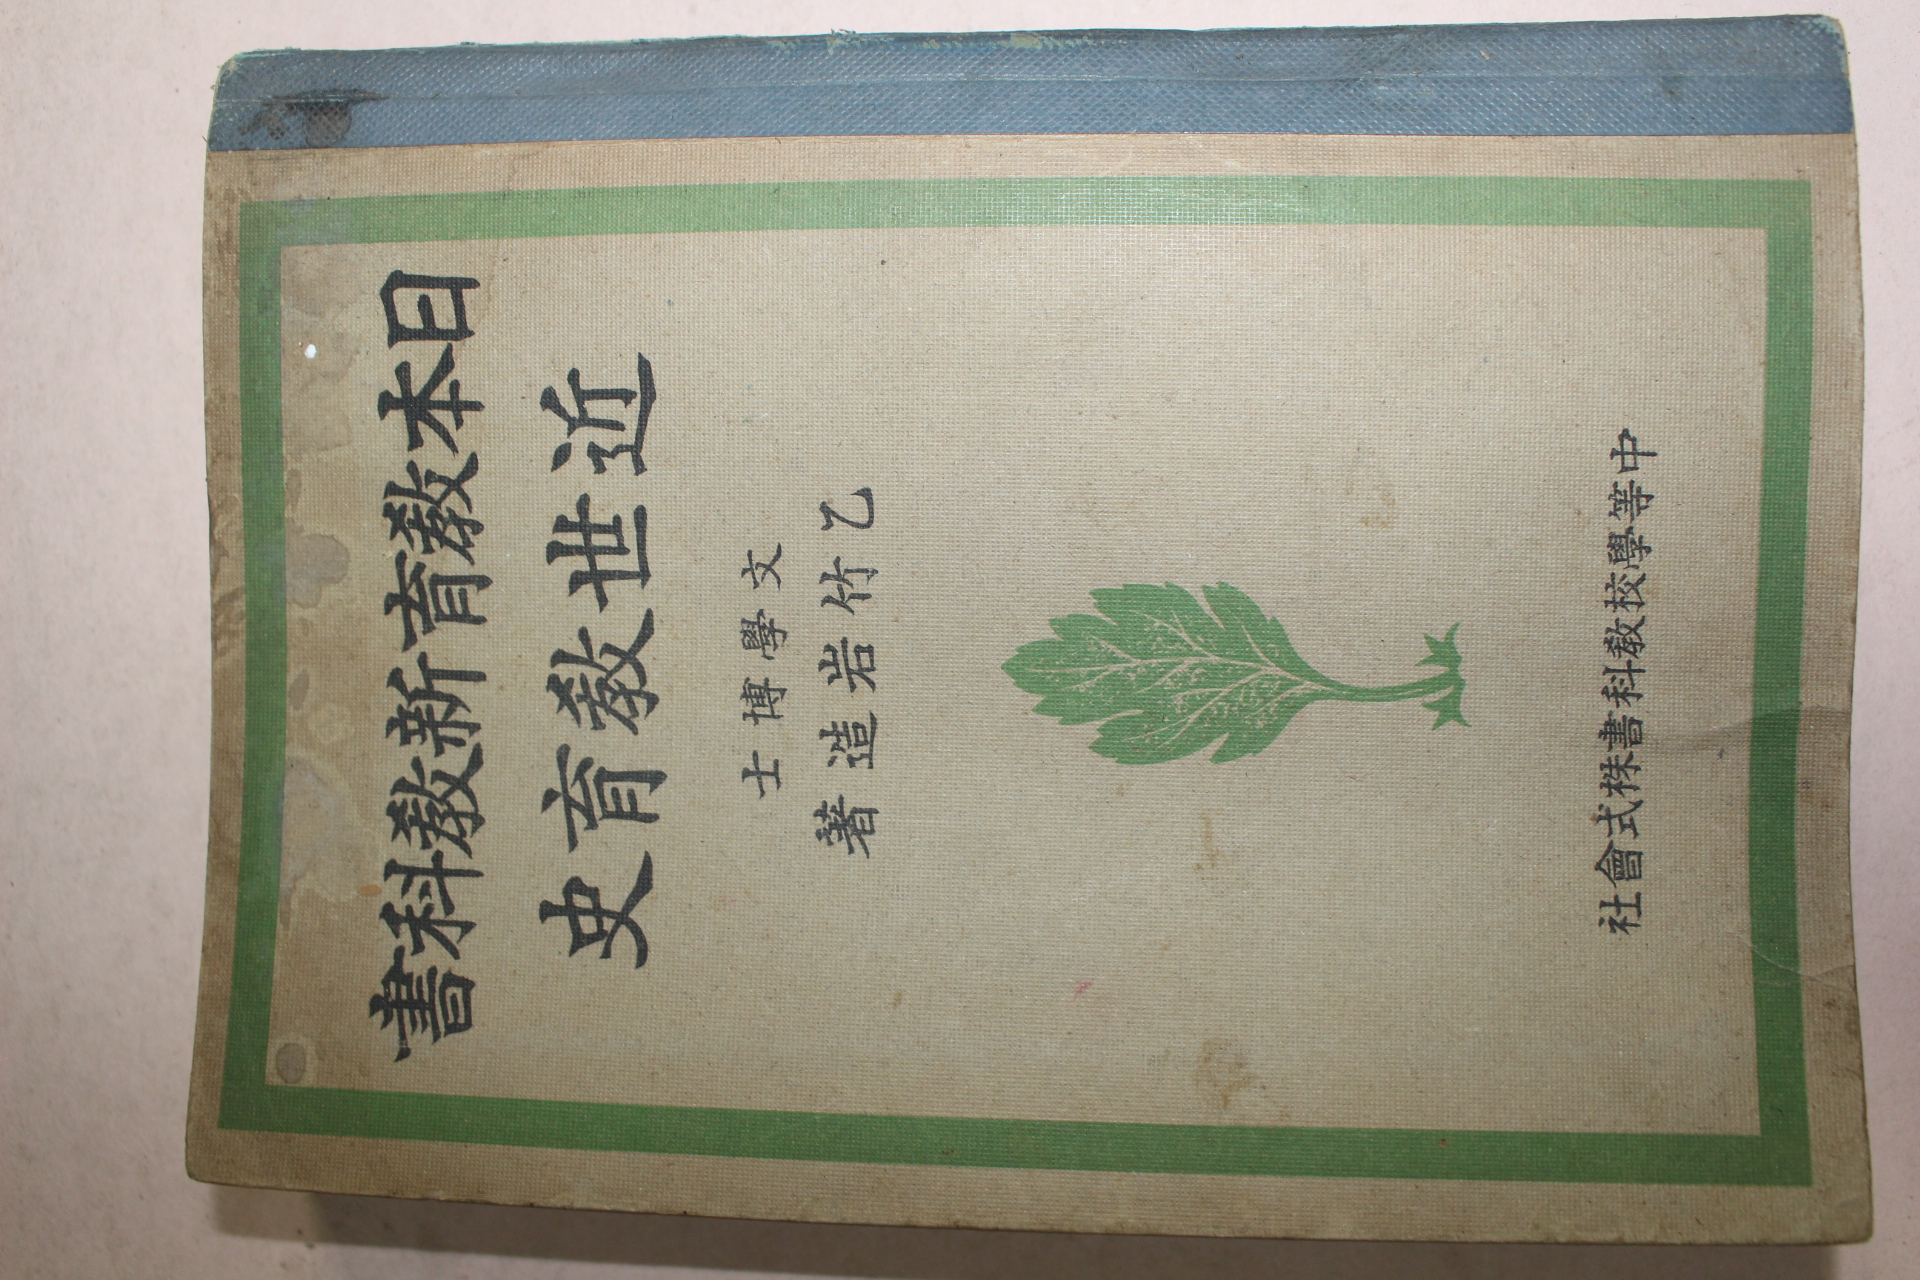 日本教育新教科書
近世教育史
文學博士
乙竹岩造著
中等學校教科書株式會社